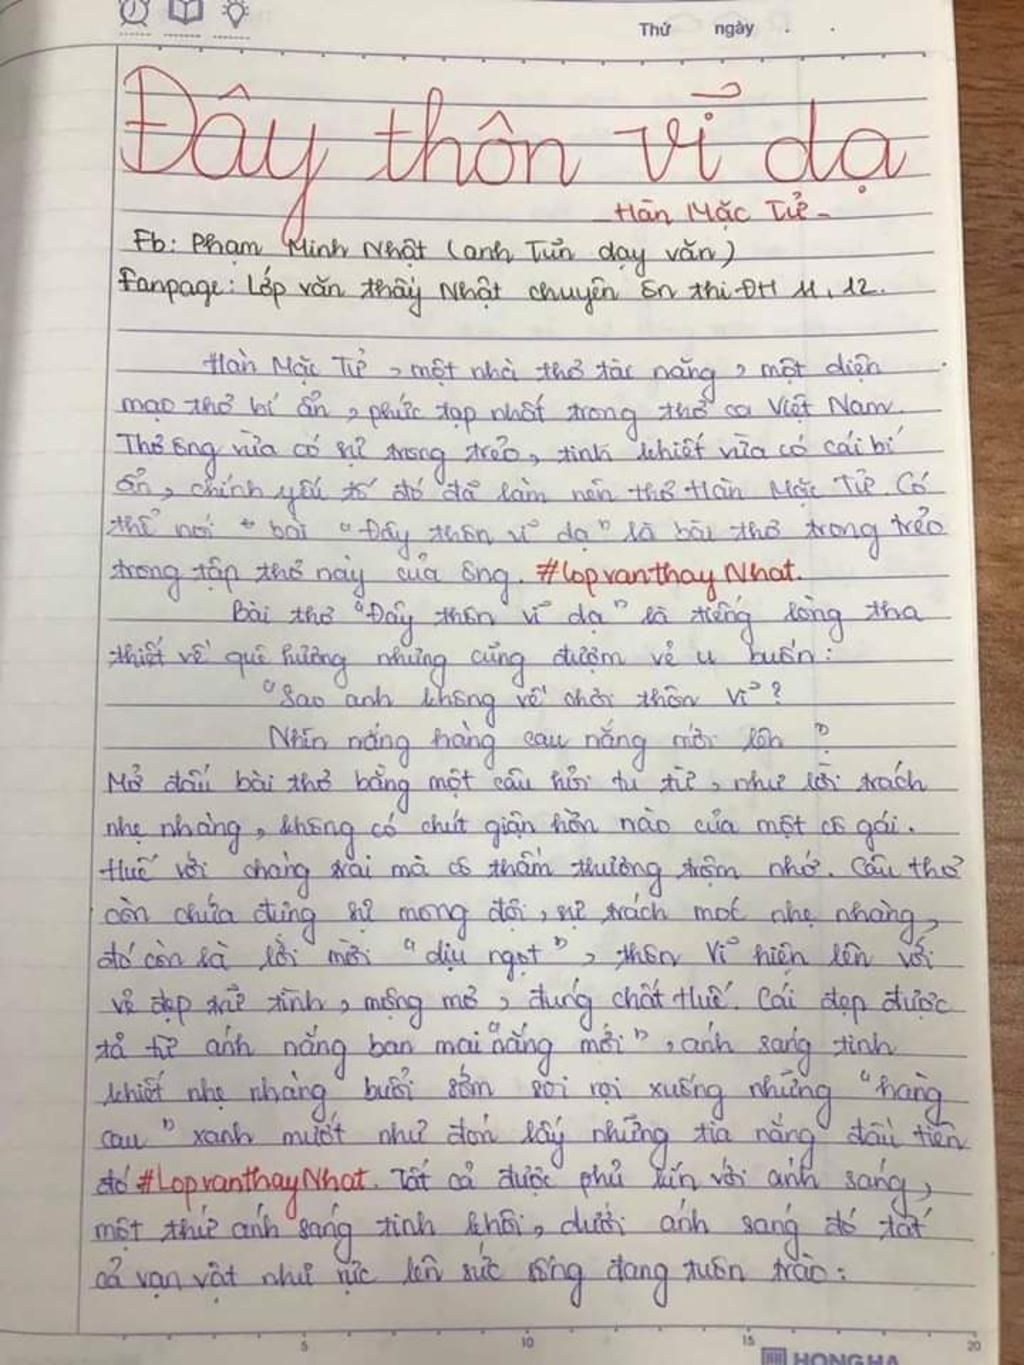 Thứ ngày . .
Đây thôn vĩ dạ
Hàn Mặc Tử -
Fb: Phạm Minh Nhật (anh Tũn dạy văn)
Fanpage: Lớp văn thầy Nhật chuyên ôn thi ĐH 11, 12.
Hàn Mặc Tử, một nhà thơ tài năng, một diện
mạo thơ bí ẩn, phức tạp nhất trong thơ ca Việt Nam.
Thơ ông vừa có sự trong trẻo, tinh khiết vừa có cái bí
ẩn, chính yếu tố đó đã làm nên thơ Hàn Mặc Tử. Có
thể nói bài "Đây thôn vĩ dạ" là bài thơ trong trẻo
trong tập thơ này của ông. #lopvanthayNhat.
Bài thơ "Đây thôn vĩ dạ" là tiếng lòng tha
thiết về quê hương nhưng cũng đượm vẻ u buồn:
"Sao anh không về chơi thôn Vĩ?
Nhìn nắng hàng cau nắng mới lên"
Mở đầu bài thơ bằng một câu hỏi tu từ, như lời trách
nhẹ nhàng, không có chút giận hờn nào của một cô gái.
Huế với chàng trai mà cô thầm thương trộm nhớ. Câu thơ
còn chứa đựng sự mong đợi, sự trách móc nhẹ nhàng,
đó còn là lời mời "dịu ngọt", thôn Vĩ hiện lên với
vẻ đẹp trữ tình, mộng mơ, đúng chất Huế. Cái đẹp được
tả từ ánh nắng ban mai "nắng mới", ánh sáng tinh
khiết nhẹ nhàng buổi sớm soi rọi xuống những "hàng
cau" xanh mướt như đón lấy những tia nắng đầu tiên
đó #LopvanthayNhat. Tất cả được phủ kín với ánh sáng,
một thứ ánh sáng tinh khôi, dưới ánh sáng đó tất
cả vạn vật như rực lên sức sống đang tuôn trào:
5 10 15 20
HONG HA